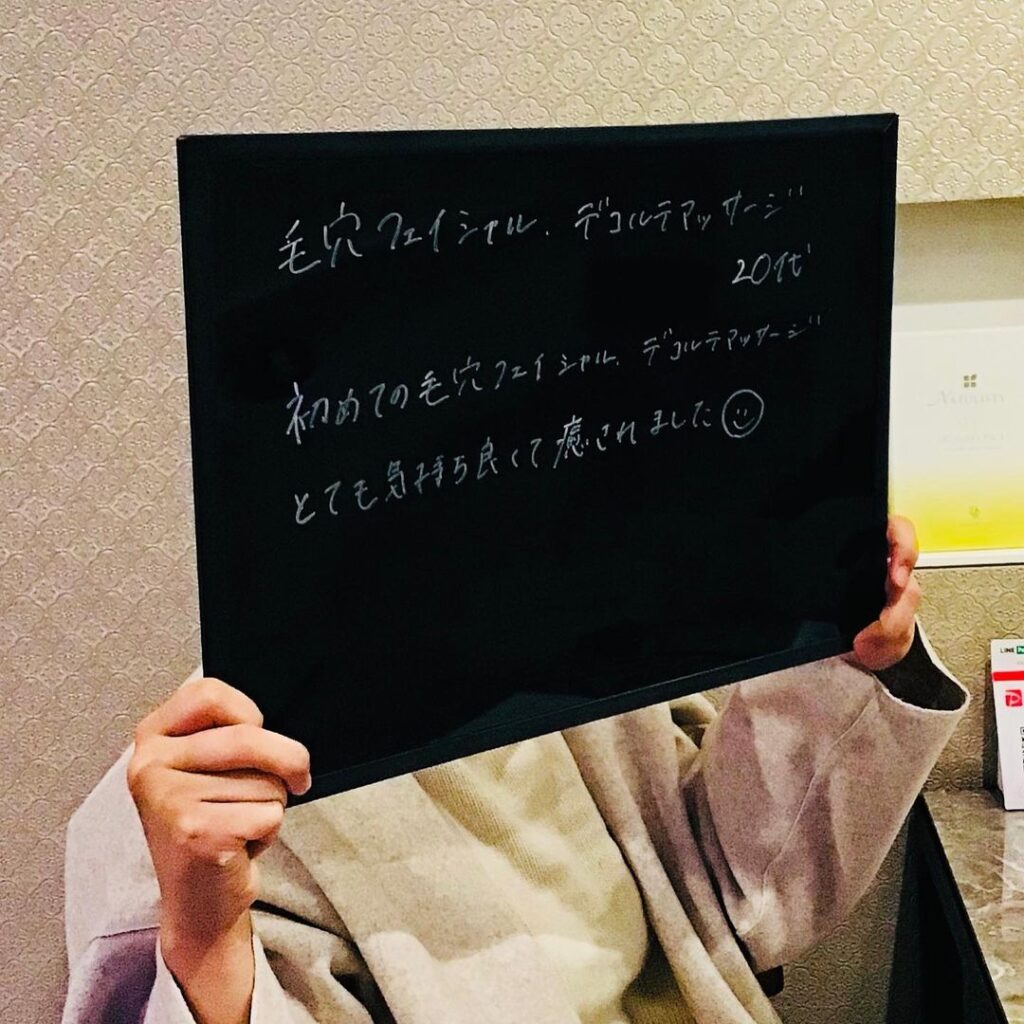 毛穴フェイシャル、デコルテマッサージ
20代
初めての毛穴フェイシャル、デコルテマッサージ
とても気持ち良くて癒されました
LINE